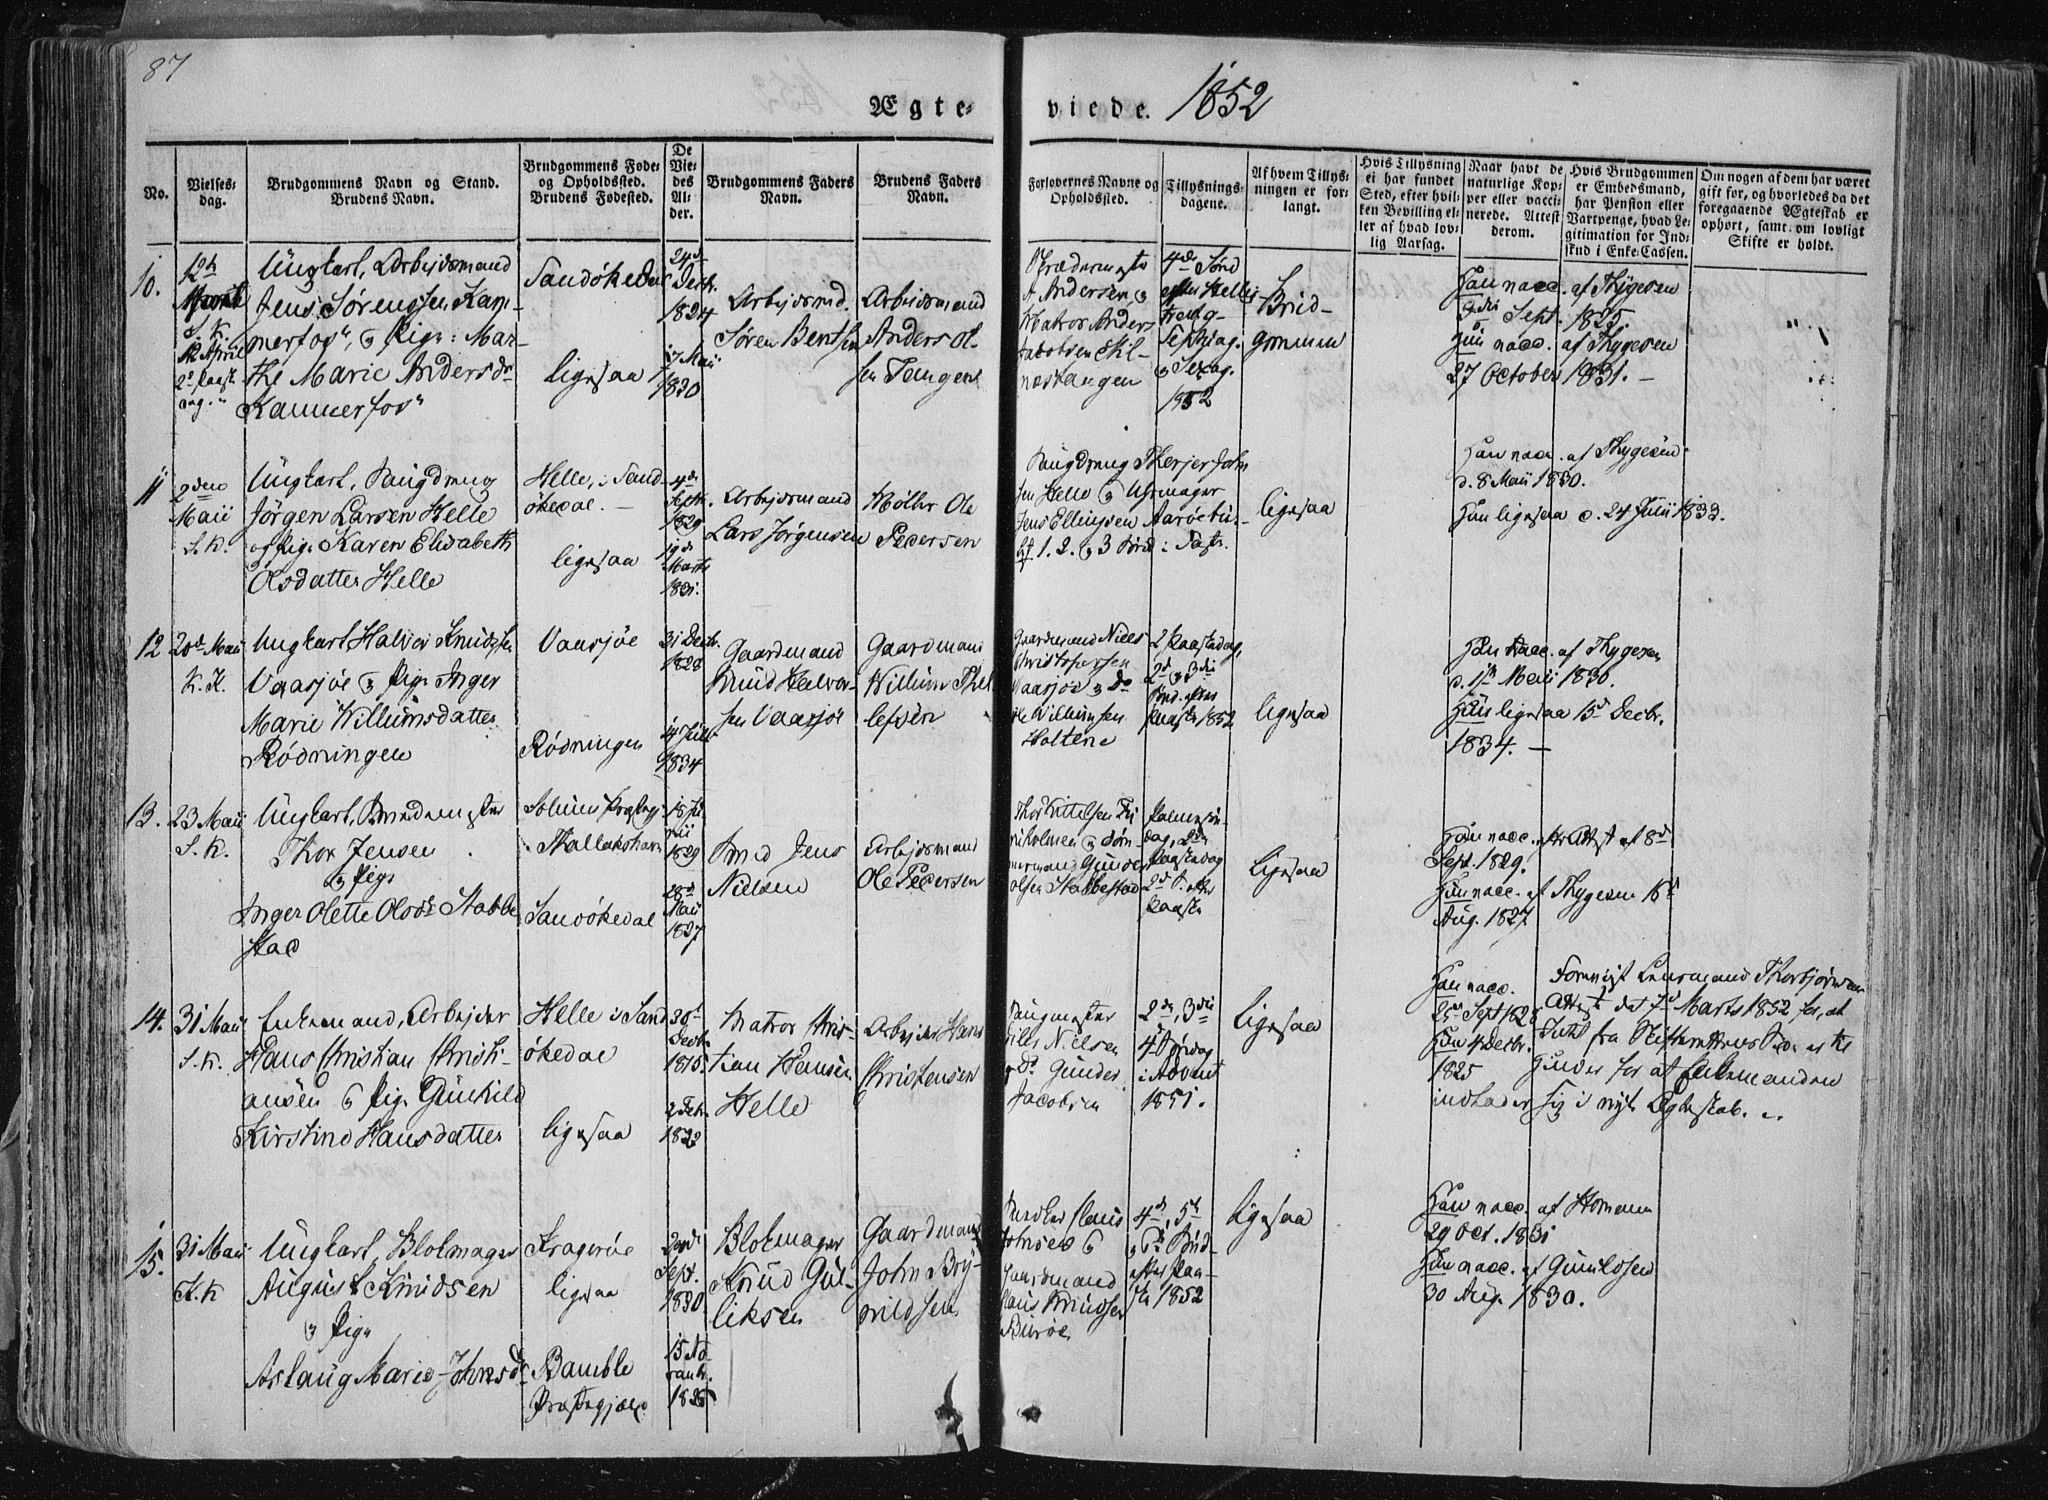 87
Ægte-
viede. 1852
No.
Vielses-
dag.
Brudgommens Navn og Stand.
Brudens Navn.
Brudgommens Føde-
og Opholdssted.
Brudens Fødested.
De
Vie-
des
Al-
der.
Brudgommens Faders
Navn.
Brudens Faders
Navn.
Forlovernes Navne og
Opholdssted.
Tillysnings-
dagene.
Af hvem Tillys-
ningen er for-
langt.
Hvis Tillysning
ei har fundet
Sted, efter hvil-
ken Bevilling el-
ler af hvad lov-
lig Aarsag.
Naar havt de
naturlige Kop-
per eller vacci-
nerede. Attest
derom.
Hvis Brudgommen
er Embedsmand,
har Pension eller
Vartpenge, hvad Le-
gitimation for Ind-
skud i Enke-Cassen.
Om nogen af dem har været
gift før, og hvorledes da det
foregaaende Ægteskab er
ophørt, samt om lovligt
Skifte er holdt.
10.
12
S. K.
12 April
2d Paaske
dag.
Ungkarl, Arbejdsmand
Jens Sørenssen Kam-
merfos, og Pige: Mar-
the Marie Andersdr
Kammerfos
Sandøkedal
ligesaa
24d
Decbr.
1824
17 Maii
1830
Arbejdsmd.
Søren Bentsen
Arbejdsmand
Anders Ol-
sen Tangen
A. Andersen og
Matros Anders
Jacobsen Stil-
nestangen
4de Sønd
efter Hellig
trekong-
Septuag.
og Sexag.
1852
Brud-
gommen
Han vacc. af Thygesen
Sept. 1825.
Hun vacc. af Thygesen
27 October 1831. —
11
2den
Maii
S. K.
Ungkarl,
Jørgen Larsen Helle
og Pige Karen Elisabeth
Olsdatter Helle
Helle, i Sand-
økedal. —
ligesaa
4de
Septb.
1829
19de
Marts
1831.
Arbejdsmand
Lars Jørgensen
Møller Ole
Pedersen
Therjer John
sen Helle og Uhrmager
Jens Ellingsen Aarøe
1. 2. og 3 Sønd i Faste.
ligesaa
Han vacc. af Thygesen
d. 8 Maii 1830.
Hun ligesaa d. 24 Junii 1833.
12
20de Maii
K. K.
Ungkarl Halvor Knudsen
Vaasjøe og Pige Inger
Marie Willumsdatter
Rødningen
Vaasjøe
Rødningen
31 Decbr.
1828
14 Juli
1834
Gaardmand
Knud Halvor-
sen Vaasjøe
Gaardmand
Willum Thel
lefsen
Gaardmand Niels
Christophersen
Vaasjøe og Do
Ole Willumsen
Holtene
2 Paaskedag,
2d og 3die
Sønd. efter
Paaske 1852
ligesaa
Han vacc. af Thygesen
d. 1ste Maii 1830.
Hun ligesaa 15d Decbr.
1834. —
13.
23 Maii
S. K.
Ungkarl,
Thor Jensen
og Pige
Inger Olette Olsdr Stabbe
stad
Solums Præstegj
Skallakshavn
Sandøkedal
18 Ju
nii
1829
28d
Maii
1827
Smed Jens
Nielsen
Arbejdsmand
Ole Pedersen
Thor Kittelsen
holmen og Tøm-
mermand Gunder
Olsen Stabbestad
Palmesøn-
dag, 2den
Paaskedag
2d S. efter
Paaske
Ligesaa
Han vacc. Attest af 8d
Sept. 1829.
Hun vacc. af Thygesen 16d
Aug. 1827.
14.
31 Maii
S. K.
Enkemand, Arbejder
Hans Christian Christi-
ansen og Pige Gunhild
Kirstine Hansdatter
Helle i Sand
økedal
ligesaa
30d
Decbr.
1815.
2 Feb.
1822
Matros Chris-
tian Hansen
Helle
Arbejder Hans
Christensen
Nils Nielsen
og Do. Gunder
Jacobsen
2den, 3die
4 Søndag
i Advent
1851.
Ligesaa
Han vacc.
25de Sept 1828
Hun 4 Decbr.
1825
Lensmand Thorbjørnsen
Attest dat 7d Marts 1852 for, at
fra Skifteretten
Hinder for at Enkemanden
indlader sig i nyt Ægteskab.
15.
31 Maii
K. K
Ungkarl, Blokmager
August Knudsen
og Pige
Aslaug Marie Johnsdr
Kragerøe
ligesaa
Bamble
Præstegjæld
20de
Sept.
1830
15 No-
vembr.
1825
Blokmager
Knud Gul-
liksen
Gaardmand
John Bry-
nildsen
Claus
Johnsen og
Gaardmand
Claus Knudsen
Burøe
4de, 5te
og 6te Sønd-
efter Paa-
ske 1852
Ligesaa
Han vacc. af Homann
29 Oct. 1831
Hun vacc. af Gunulsen
30 Aug. 1830.